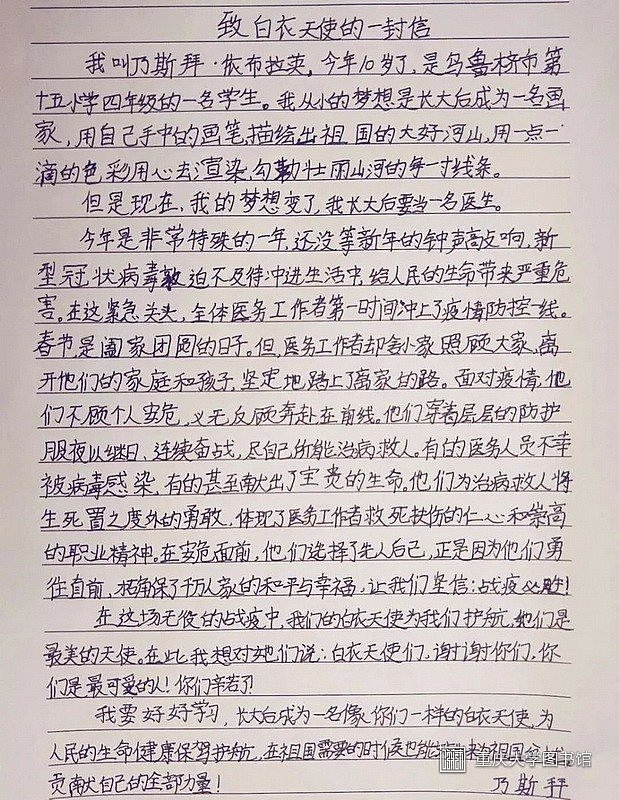 致白衣天使的一封信
我叫乃斯拜·依布拉英,今年10岁了,是乌鲁木齐市第
十五小学四年级的一名学生。我从小的梦想是长大后成为一名画
家,用自己手中的画笔描绘出祖国的大好河山,用一点一
滴的色彩用心去渲染、勾勒壮丽山河的每一寸线条。
但是现在,我的梦想变了,我长大后要当一名医生。
今年是非常特殊的一年,还没等新年的钟声敲响,新
型冠状病毒就迫不及待冲进生活中,给人民的生命带来严重危
害。在这紧急关头,全体医务工作者第一时间冲上了疫情防控一线。
春节是阖家团圆的日子。但,医务工作者却舍小家照顾大家,离
开他们的家庭和孩子,坚定地踏上了离家的路。面对疫情,他
们不顾个人安危,义无反顾奔赴在前线。他们穿着层层的防护
服夜以继日、连续奋战,尽自己所能治病救人。有的医务人员不幸
被病毒感染,有的甚至献出了宝贵的生命。他们为治病救人将
生死置之度外的勇敢,体现了医务工作者救死扶伤的仁心和崇高
的职业精神。在安危面前,他们选择了先人后己,正是因为他们勇
往直前,才确保了千万人家的和平与幸福,让我们坚信:战疫必胜!
在这场无役的战疫中,我们的白衣天使为我们护航,她们是
最美的天使。在此我想对她们说:白衣天使们,谢谢你们,你
们是最可爱的人!你们辛苦了!
我要好好学习,长大后成为一名像你们一样的白衣天使,为
人民的生命健康保驾护航,在祖国需要的时候也能 为祖国
贡献自己的全部力量!
乃斯拜
重庆大学图书馆